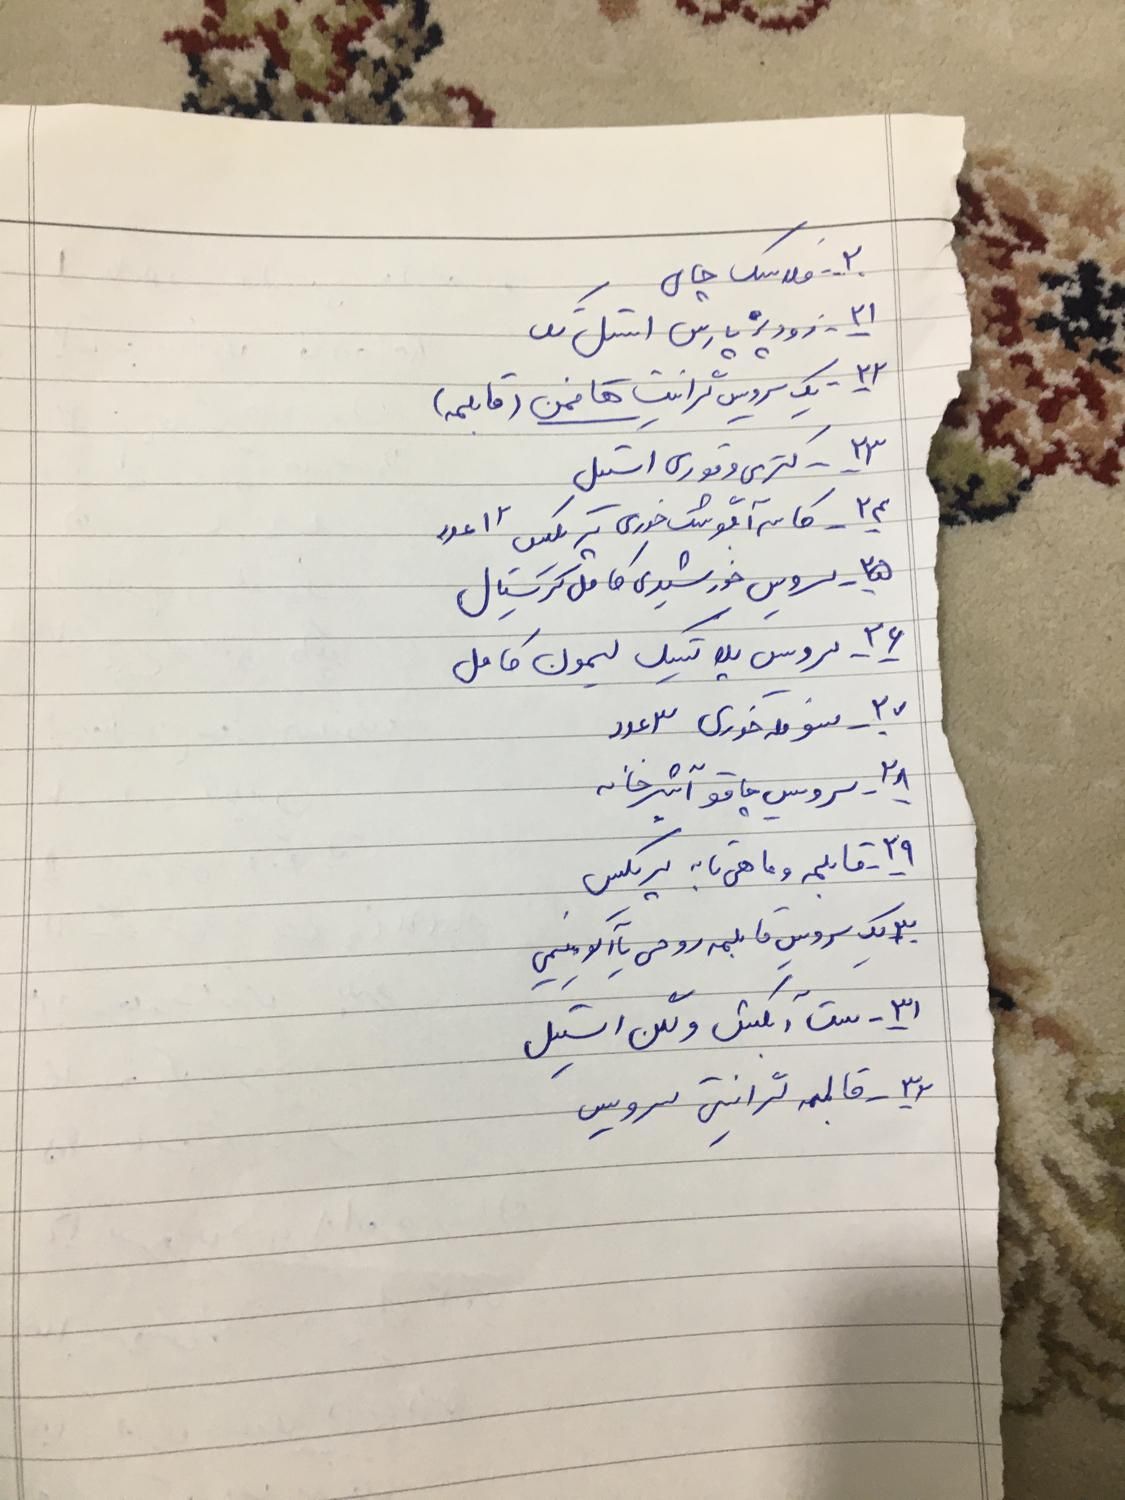 ۲۰- فلاسک چای
۲۱- زودپز پارس استیل تک
۲۲- یک سرویس گرانیت هافمن (قابلمه)
۲۳- کتری و قوری استیل
۲۴- کاسه آبگوشت خوری پیرکس ۱۲ عدد
۲۵- سرویس خورشیدی کامل کریستال
۲۶- سرویس پلاستیک لیمون کامل
۲۷- خوری ۳ عدد
۲۸- سرویس چاقو آشپزخانه
۲۹- قابلمه و ماهی تابه پیرکس
۳۰ یک سرویس قابلمه روحی یا آلومینیمی
۳۱- ست آبکش و لگن استیل
۳۲- قابلمه گرانیتی سرویس